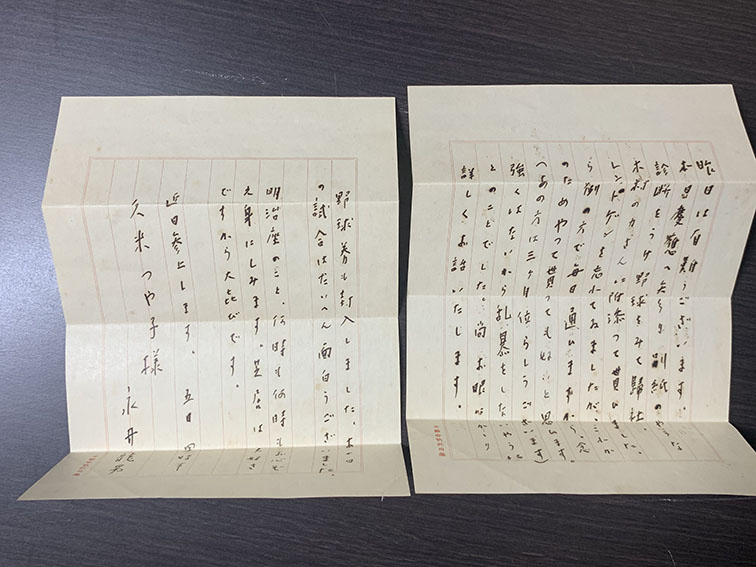 昨日は有難うございます
本日慶應へ参り別紙の
診断をうけ野球をみて歸社
木村の力さんに附添って貰いました。
レントゲンを忘れてゐましたが、これか
ら街の方で毎日通ひますから、念
のためやって貰っても好いと思ひます
(あの方は三ヶ月位らしうございます)
強くはないから乱暴をしないやうに
とのことでした。尚お眼にかゝり
詳しくお話いたします。
野球券も封入しました、本日
の試合はたいへん面白うございました。
明治座のこと、何時も何時も
え身にしみます。芝居は大好き
ですから大喜びです。
近日参上します。 五日
永井龍男
久米つや子様